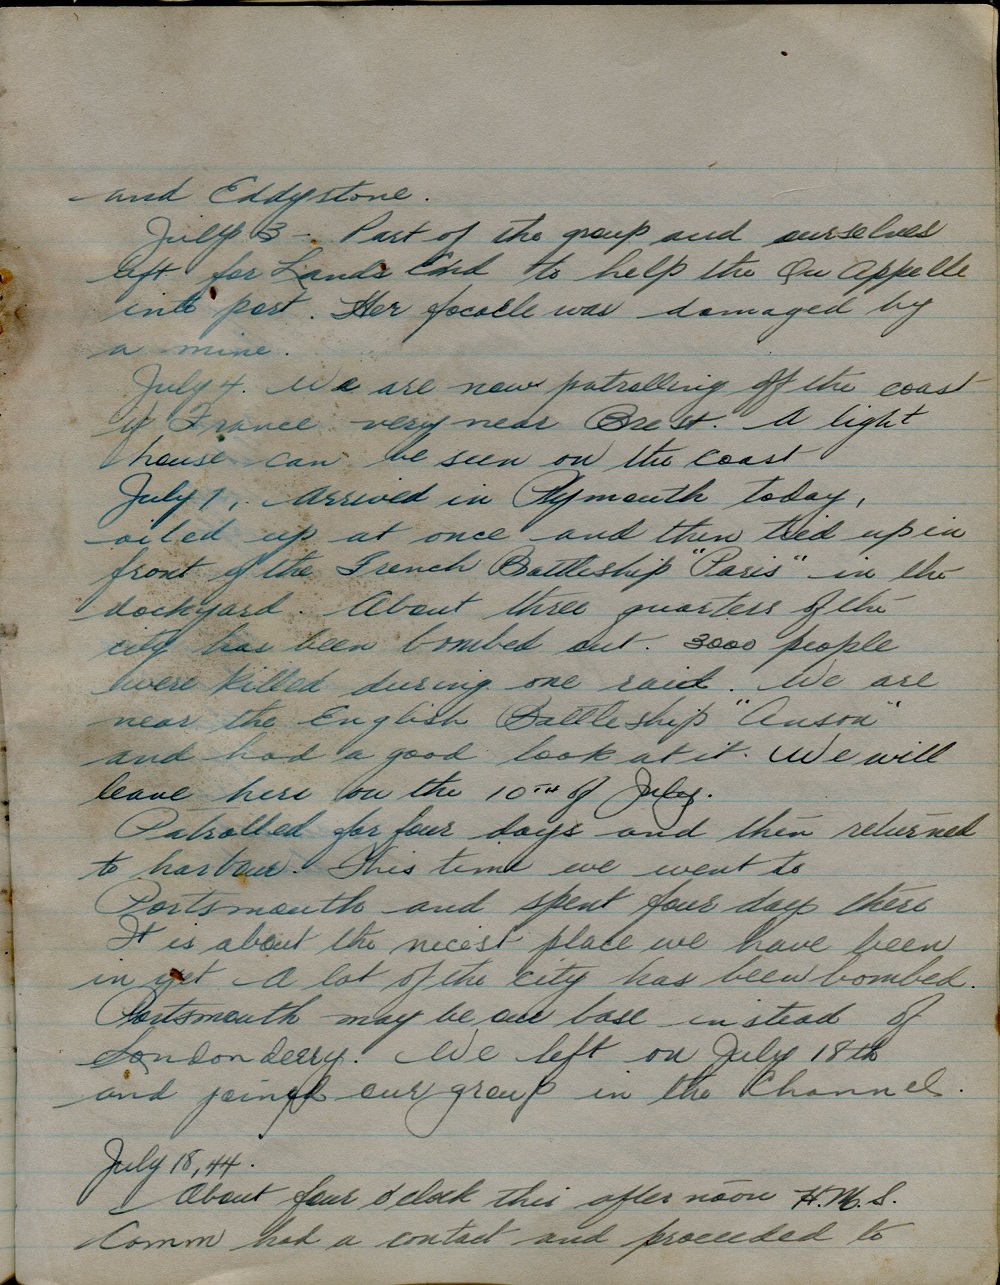 and Eddystone.
July 3 - Part of the group and ourselves
left for Lands End to help the Qu Appelle
into port. Her focacle was damaged by
a mine.
July 4. We are now patrolling off the coast
of France very near Brest. A light
house can be seen on the coast
July 7, Arrived in Plymouth today,
oiled up at once and then tied up in
front of the French Battleship "Paris" in the
dockyard. About three quarters of the
city has been bombed out. 3000 people
were killed during one raid. We are
near the English Battleship "Anson"
and had a good look at it. We will
leave here on the 10TH of July.
Patrolled for four days and then returned
to harbour. This time we went to
Portsmouth and spent four day there
It is about the nicest place we have been
in yet A lot of the city has been bombed.
Portsmouth may be our base instead of
Londonderry. We left on July 18th
and joined our group in the Channel.
July 18, 44.
About four o'clock this afternoon H.M.S.
had a contact and proceeded to